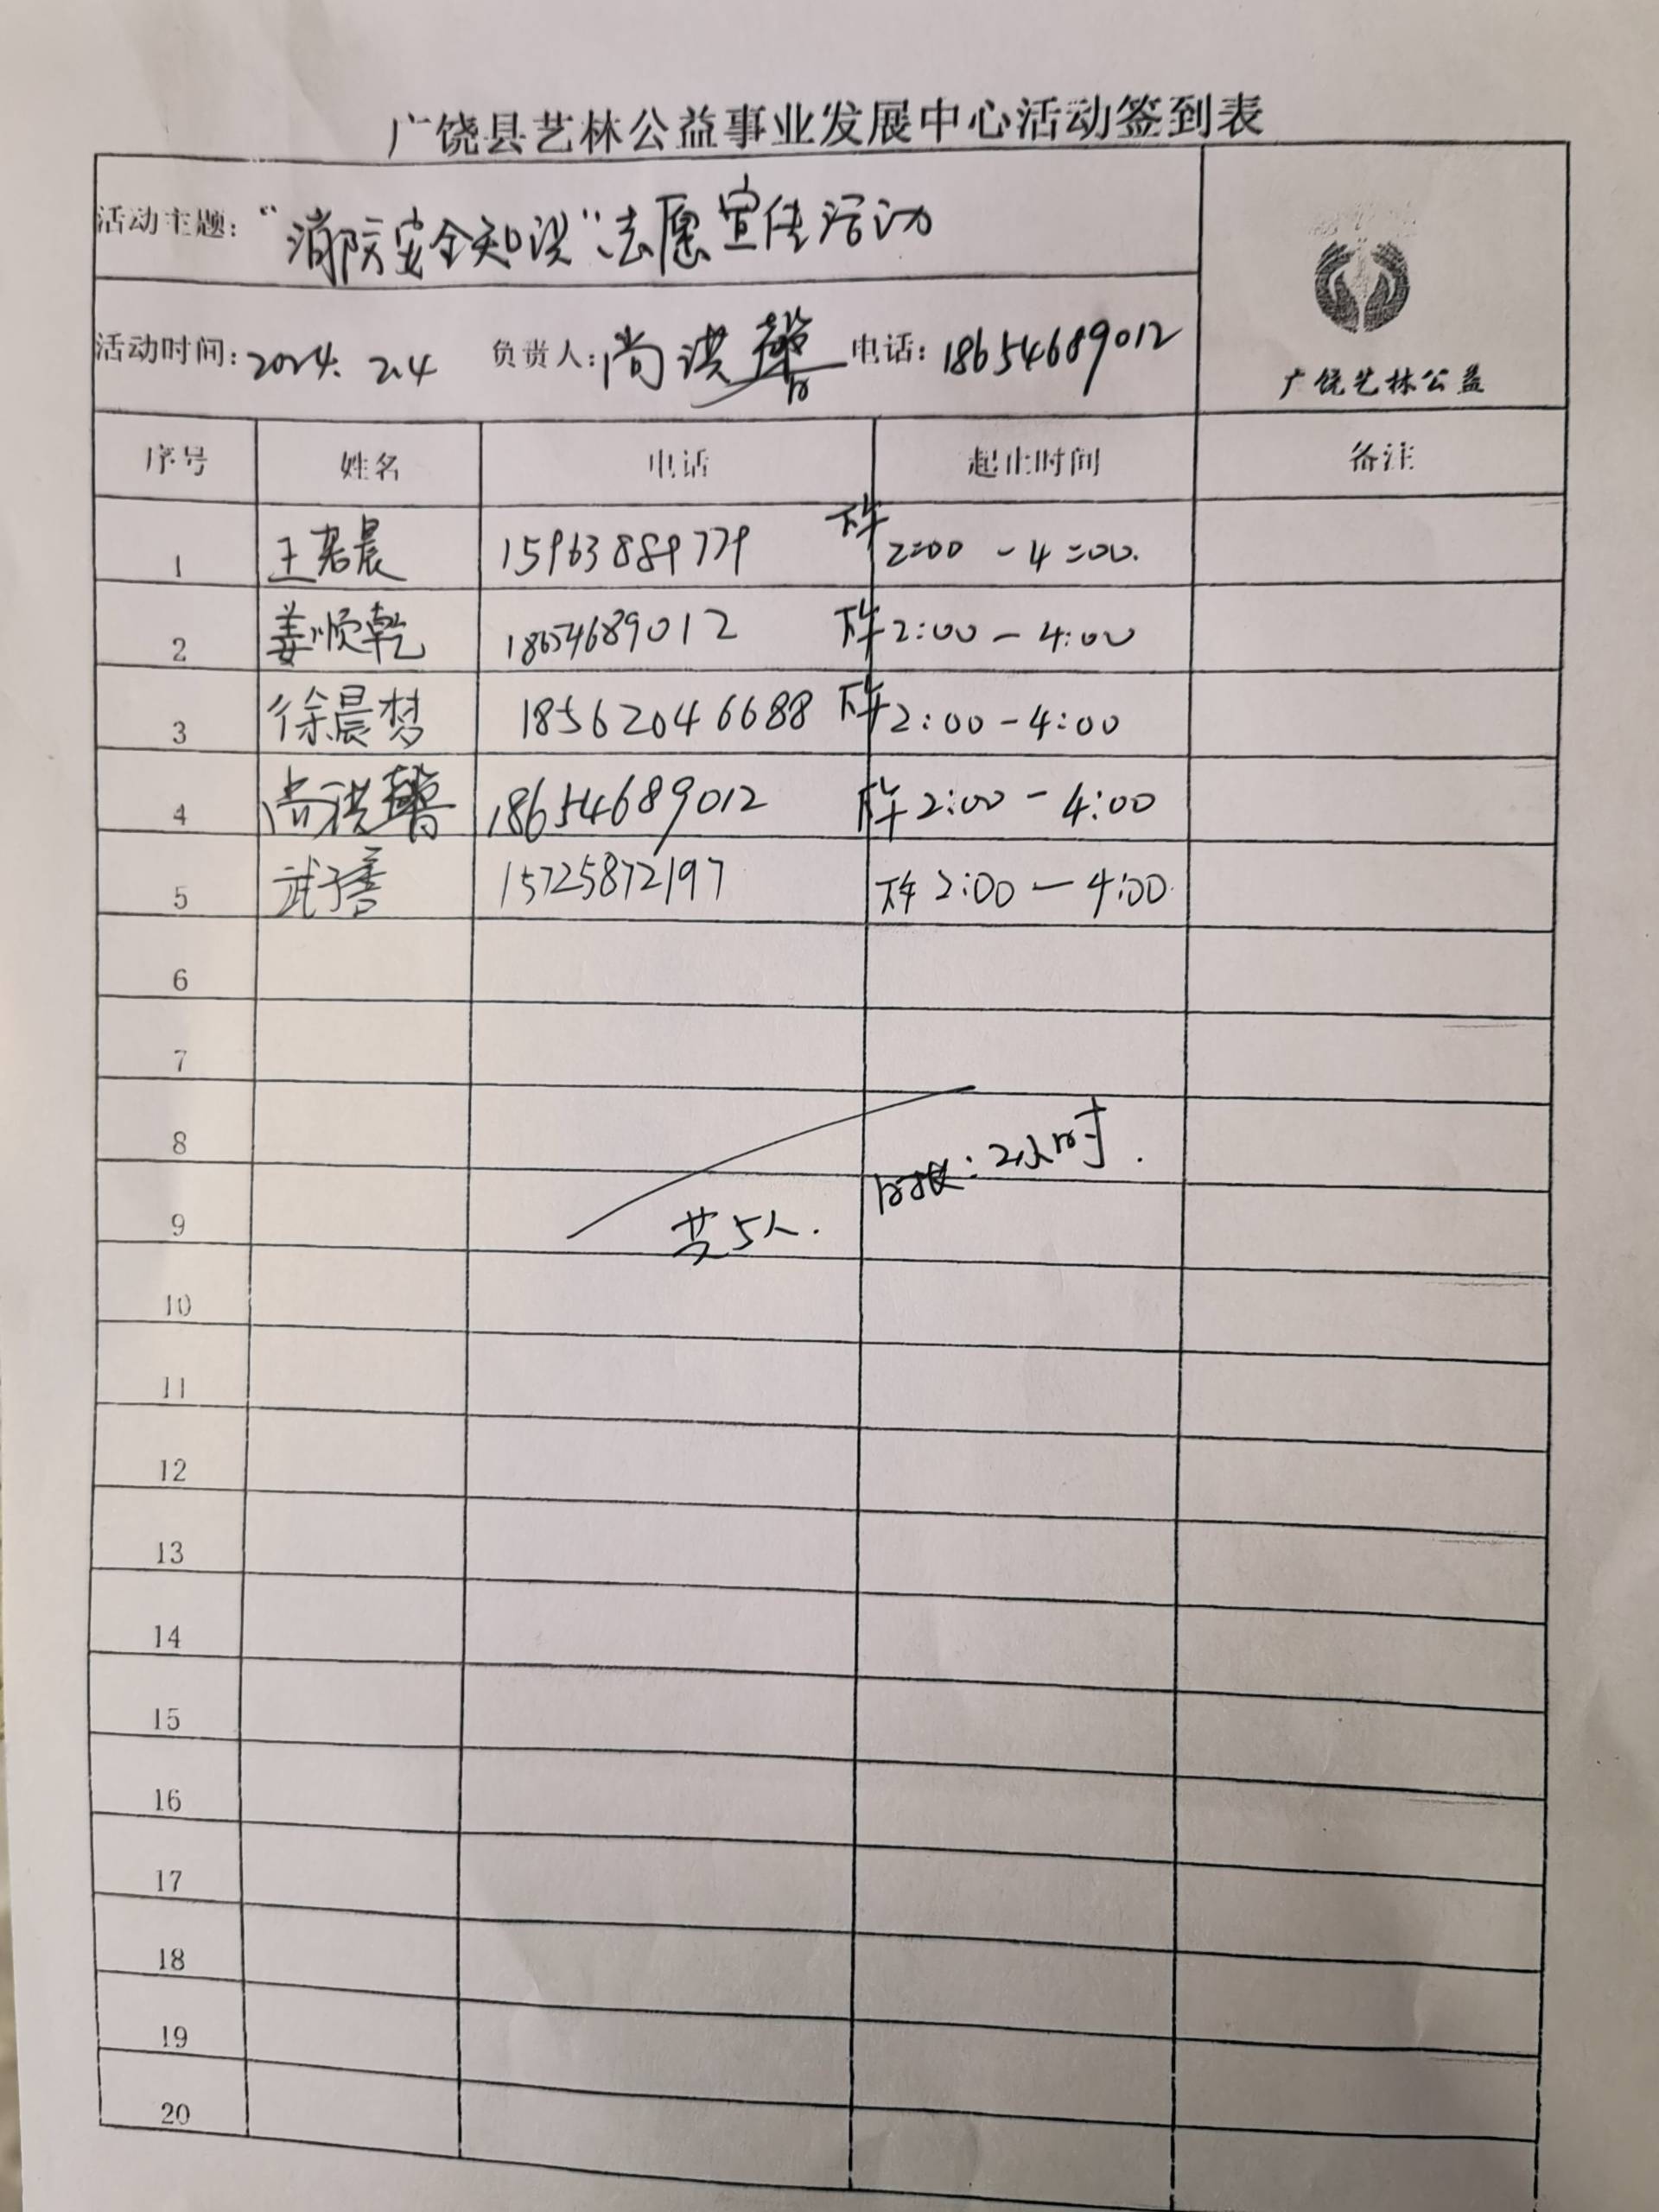 广饶县艺林公益事业发展中心活动签到表
活动主题："消防安全知识"志愿宣传活动
活动时间：2024.2.4 负责人：尚洪馨 电话：18654689012
广饶艺林公益
序号 姓名 电话 起止时间 备注
1 王君晨 15963889779 下午2:00-4:00.
2 姜顺乾 18654689012 下午2:00-4:00
3 徐晨梦 18562046688 下午2:00-4:00
4 尚洪馨 18654689012 下午2:00-4:00
5 武子 15725872197 下午2:00-4:00.
6
7
8 时长：2小时.
9 共5人.
10
11
12
13
14
15
16
17
18
19
20